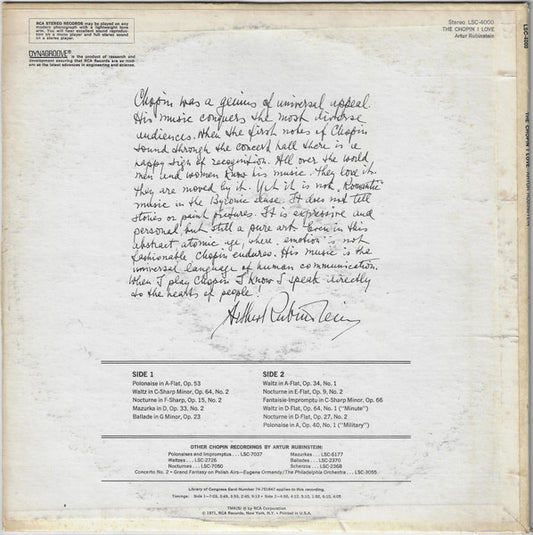 RCA STEREO RECORDS may be played on any
modern phonograph with a lightweight tone
arm. You will hear excellent sound reproduc-
tion on a mono player and full stereo sound
on a stereo player.
DYNAGROOVE® is the product of research and
development assuring that RCA Records are as mod-
ern as the latest advances in engineering and science.
Stereo LSC-4000
THE CHOPIN I LOVE
Artur Rubinstein
LSC-4000
THE CHOPIN I LOVE ARTUR RUBINSTEIN
Chopin was a genius of universal appeal.
His music conquers the most diverse
audiences. When the first notes of Chopin
sound through the concert hall there is a
happy sigh of recognition. All over the world
men and women know his music. They love it.
They are moved by it. Yet it is not "Romantic"
music in the Byronic sense. It does not tell
stories or paint pictures. It is expressive and
personal, but still a pure art. Even in this
abstract atomic age, where emotion is not
fashionable, Chopin endures. His music is the
universal language of human communication.
When I play Chopin I know I speak directly
to the hearts of people!
Arthur Rubinstein
SIDE 1
Polonaise in A-Flat, Op. 53
Waltz in C-Sharp Minor, Op. 64, No. 2
Nocturne in F-Sharp, Op. 15, No. 2
Mazurka in D, Op. 33, No. 2
Ballade in G Minor, Op. 23
SIDE 2
Waltz in A-Flat, Op. 34, No. 1
Nocturne in E-Flat, Op. 9, No. 2
Fantaisie-Impromptu in C-Sharp Minor, Op. 66
Waltz in D-Flat, Op. 64, No. 1 ("Minute")
Nocturne in D-Flat, Op. 27, No. 2
Polonaise in A, Op. 40, No. 1 ("Military")
OTHER CHOPIN RECORDINGS BY ARTUR RUBINSTEIN:
Polonaises and Impromptus...LSC-7037
Waltzes...LSC-2726
Nocturnes...LSC-7050
Mazurkas...LSC-6177
Ballades...LSC-2370
Scherzos...LSC-2368
Concerto No. 2 • Grand Fantasy on Polish Airs—Eugene Ormandy/The Philadelphia Orchestra...LSC-3055
Library of Congress Card Number 74-751647 applies to this recording.
Timings: Side 1—7:05, 3:49, 3:50, 2:40, 9:13 • Side 2—4:50, 4:22, 5:10, 1:50, 6:10, 4:05
TMK(S) ® by RCA Corporation
© 1971, RCA Records, New York, N.Y. • Printed in U.S.A.